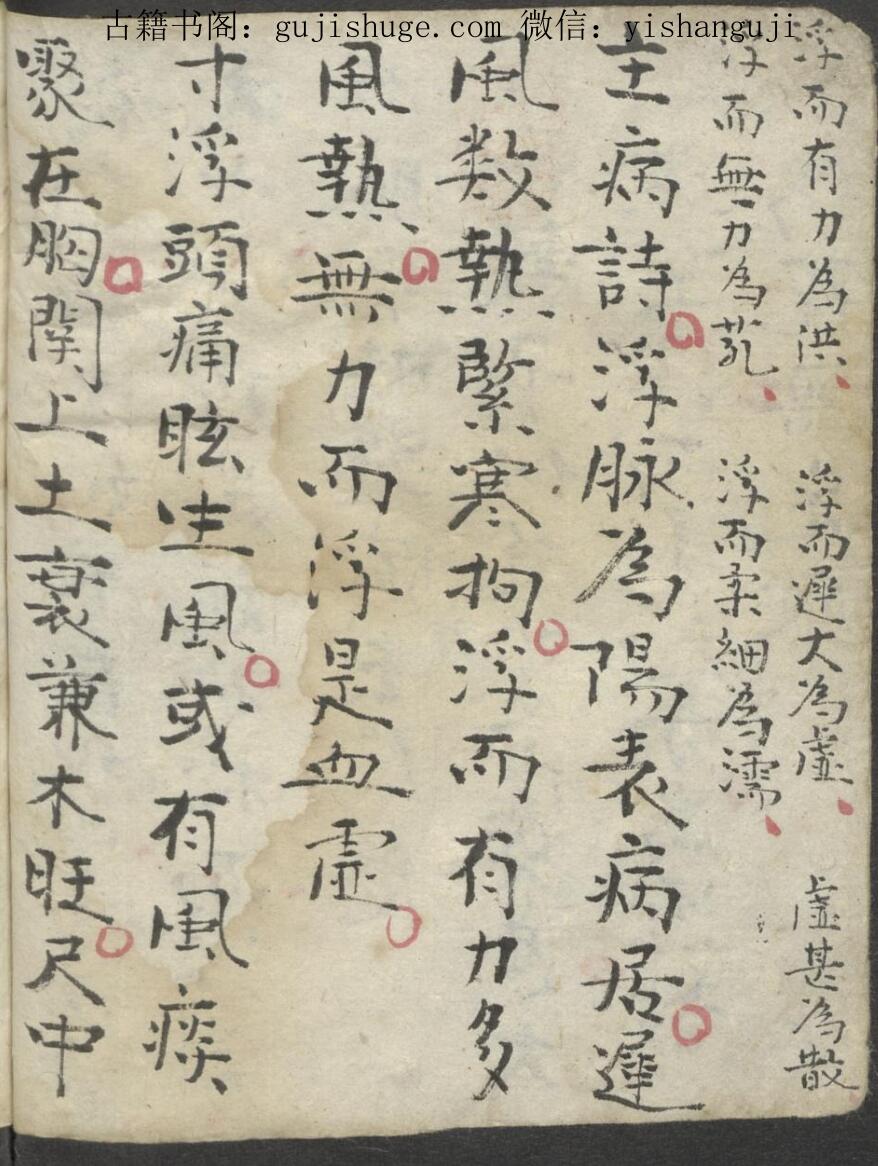 古籍书阁：gujishuge.com 微信：yishanguji
浮而有力為洪、 浮而遲大為虛、 虛甚為散
浮而無力為芤、 浮而柔細為濡、
主病詩浮脉為陽表病居遲
風数熱緊寒拘浮而有力多
風熱無力而浮是血虛
寸浮頭痛眩生風或有風痰
聚在胸関上土衰兼木旺尺中